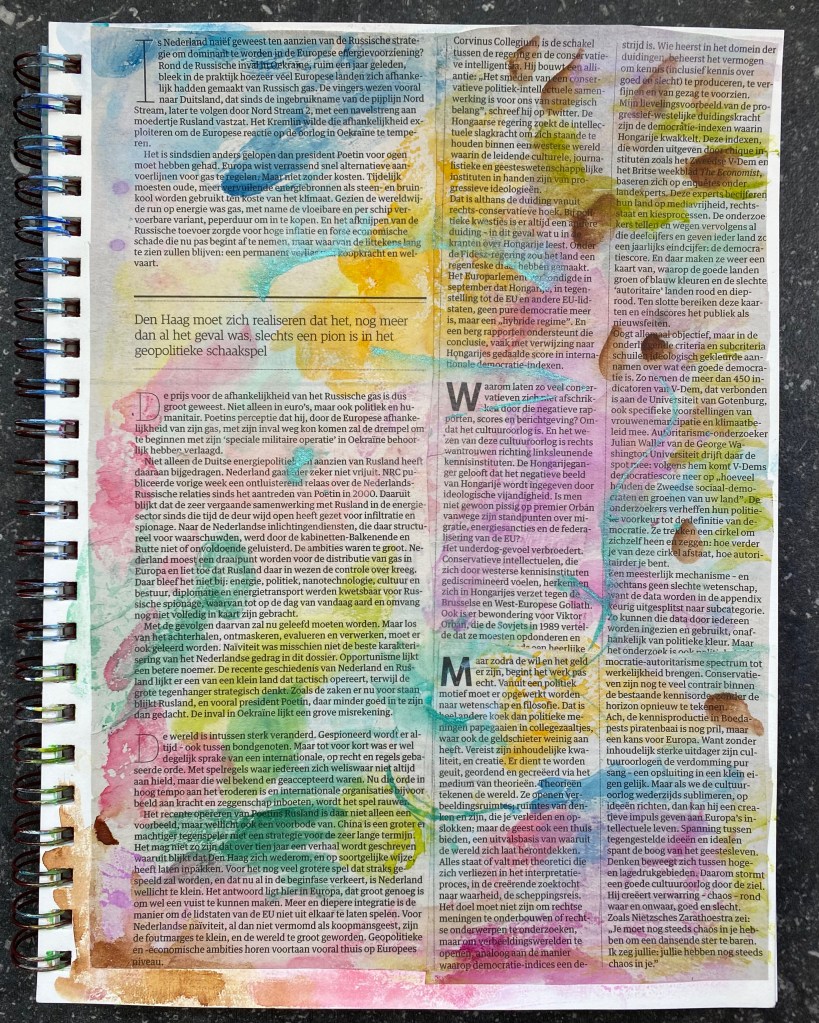 Is Nederland naïef geweest ten aanzien van de Russische strate-
gie om dominant te worden in de Europese energievoorziening?
Rond de Russische inval in Oekraïne, ruim een jaar geleden,
bleek in de praktijk hoezeer veel Europese landen zich afhanke-
lijk hadden gemaakt van Russisch gas. De vingers wezen vooral
naar Duitsland, dat sinds de ingebruikname van de pijplijn Nord
Stream, later te volgen door Nord Stream 2, met een navelstreng aan
moedertje Rusland vastzat. Het Kremlin wilde die afhankelijkheid ex-
ploiteren om de Europese reactie op de oorlog in Oekraïne te tempe-
ren.
Het is sindsdien anders gelopen dan president Poetin voor ogen
moet hebben gehad. Europa wist verrassend snel alternatieve aan-
voerlijnen voor gas te regelen. Maar niet zonder kosten. Tijdelijk
moesten oude, meer vervuilende energiebronnen als steen- en bruin-
kool worden gebruikt ten koste van het klimaat. Gezien de wereldwij-
de run op energie was gas, met name de vloeibare en per schip ver-
voerbare variant, peperduur om in te kopen. En het afknijpen van de
Russische toevoer zorgde voor hoge inflatie en forse economische
schade die nu pas begint af te nemen, maar waarvan de littekens lang
te zien zullen blijven: een permanent verlies aan koopkracht en wel-
vaart.
Den Haag moet zich realiseren dat het, nog meer
dan al het geval was, slechts een pion is in het
geopolitieke schaakspel
De prijs voor de afhankelijkheid van het Russische gas is dus
groot geweest. Niet alleen in euro's, maar ook politiek en hu-
manitair. Poetins perceptie dat hij, door de Europese afhanke-
lijkheid van zijn gas, met zijn inval weg kon komen zal de drempel om
te beginnen met zijn 'speciale militaire operatie' in Oekraïne behoor-
lijk hebben verlaagd.
Niet alleen de Duitse energiepolitiek ten aanzien van Rusland heeft
daaraan bijgedragen. Nederland gaat hier zeker niet vrijuit. NRC pu-
bliceerde vorige week een onthullend relaas over de Nederlands-
Russische relaties sinds het aantreden van Poetin in 2000. Daaruit
blijkt dat de zeer vergaande samenwerking met Rusland in de energie-
sector sinds die tijd de deur wijd open heeft gezet voor infiltratie en
spionage. Naar de Nederlandse inlichtingendiensten, die daar structu-
reel voor waarschuwden, werd door de kabinetten-Balkenende en
Rutte niet of onvoldoende geluisterd. De ambities waren te groot. Ne-
derland moest en zou draaipunt worden voor de distributie van gas in
Europa en liet toe dat Rusland daar in wezen de controle over kreeg.
Daar bleef het niet bij: energie, politiek, nanotechnologie, cultuur en
bestuur, diplomatie en energietransport werden kwetsbaar voor Rus-
sische spionage, waarvan tot op de dag van vandaag aard en omvang
nog niet volledig in kaart zijn gebracht.
Met de gevolgen daarvan zal nu geleefd moeten worden. Maar los
van het achterhalen, ontmaskeren, evalueren en verwerken, moet er
ook geleerd worden. Naïviteit was misschien niet de beste karakteri-
sering van het Nederlandse gedrag in dit dossier. Opportunisme lijkt
een betere noemer. De recente geschiedenis van Nederland en Rus-
land lijkt er een van een klein land dat tactisch opereert, terwijl de
grote tegenhanger strategisch denkt. Zoals de zaken er nu voor staan
blijkt Rusland, en vooral president Poetin, daar minder goed in te zijn
dan gedacht. De inval in Oekraïne lijkt een grove misrekening.
De wereld is intussen sterk veranderd. Gespioneerd wordt er al-
tijd - ook tussen bondgenoten. Maar tot voor kort was er wel
degelijk sprake van een internationale, op recht en regels geba-
seerde orde. Met spelregels waar iedereen zich weliswaar niet altijd
aan hield, maar die wel bekend en geaccepteerd waren. Nu die orde in
hoog tempo aan het eroderen is en internationale organisaties bijvoor-
beeld aan kracht en zeggenschap inboeten, wordt het spel rauwer.
Het recente opereren van Poetins Rusland is daar niet alleen een
voorbeeld, maar wellicht ook een voorbode van. China is een groter en
machtiger tegenspeler met een strategie voor de zeer lange termijn.
Het mag niet zo zijn dat over tien jaar een verhaal wordt geschreven
waaruit blijkt dat Den Haag zich wederom, en op soortgelijke wijze,
heeft laten inpakken. Voor het nog veel grotere spel dat straks ge-
speeld zal worden, en dat nu al in de beginfase verkeert, is Nederland
wellicht te klein. Het antwoord ligt hier in Europa, dat groot genoeg is
om wel een vuist te kunnen maken. Meer en diepere integratie is de
manier om de lidstaten van de EU niet uit elkaar te laten spelen. Voor
Nederlandse naïviteit, al dan niet vermomd als koopmansgeest, zijn
de foutmarges te klein, en de wereld te groot geworden. Geopolitieke
en -economische ambities horen voortaan vooral thuis op Europees
niveau.
Corvinus Collegium, is de schakel
tussen de regering en de conserva-
tieve intelligentsia. Hij bouwt een alli-
antie: „Het smeden van conser-
vatieve politiek-intellectuele samen-
werking is voor ons van strategisch
belang", schreef hij op Twitter. De
Hongaarse regering zoekt de intellec-
tuele slagkracht om zich staande te
houden binnen een westerse wereld
waarin de leidende culturele, journa-
listieke en geesteswetenschappelijke
instituten in handen zijn van pro-
gressieve ideologieën.
Dat is althans de duiding vanuit
rechts-conservatieve hoek. Bij poli-
tieke kwesties is er altijd een andere
duiding – in dit geval wat u in
kranten over Hongarije leest. Onder
de Fidesz-regering zou het land een
regenfeske draai hebben gemaakt.
Het Europarlement verkondigde in
september dat Hongarije, in tegen-
stelling tot de EU en andere EU-lid-
staten, geen pure democratie meer
is, maar een „hybride regime". En
een berg rapporten ondersteunt die
conclusie, vaak met verwijzing naar
Hongarijes gedaalde score in interna-
tionale democratie-indexen.
Waarom laten zo veel conser-
vatieven zich niet afschrik-
ken door die negatieve rap-
porten, scores en berichtgeving? Om-
dat het cultuuroorlog is. En het we-
zen van deze cultuuroorlog is rechts
wantrouwen richting linksleunende
kennisinstituten. De Hongarijegan-
ger gelooft dat het negatieve beeld
van Hongarije wordt ingegeven door
ideologische vijandigheid. Is men
niet gewoon pissig op premier Orbán
vanwege zijn standpunten over mi-
gratie, energiesancties en de federa-
lisering van de EU?
Het underdog-gevoel verbroedert.
Conservatieve intellectuelen, die
zich door westerse kennisinstituten
gediscrimineerd voelen, herkennen
zich in Hongarijes verzet tegen de
Brusselse en West-Europese Goliath.
Ook is er bewondering voor Viktor
Orbán, die de Sovjets in 1989 vertel-
de dat ze moesten opdonderen en
een heerlijke
Maar zodra de wil en het geld
er zijn, begint het werk pas
echt. Vanuit een politiek
motief moet er opgewerkt worden
naar wetenschap en filosofie. Dat is
veel andere koek dan politieke me-
ningen papegaaien in collegezaaltjes,
waar ook de geldschieter weinig aan
heeft. Vereist zijn inhoudelijke kwa-
liteit, en creatie. Er dient te worden
geuit, geordend en gecreëerd via het
medium van theorieën. Theorieën
tekenen de wereld. Ze openen ver-
beeldingsruimtes, ruimtes van den-
ken en zijn, die je verleiden en op-
slokken; maar de geest ook een thuis
bieden, een uitvalsbasis van waaruit
de wereld zich laat herontdekken.
Alles staat of valt met theoretici die
zich verliezen in het interpretatie-
proces, in de creërende zoektocht
naar waarheid, de scheppingsreis.
Het doel moet niet zijn om rechtse
meningen te onderbouwen of recht-
se onderwerpen te onderzoeken,
maar om verbeeldingswerelden te
openen, analoog aan de manier
waarop democratie-indices een de-
strijd is. Wie heerst in het domein der
duidingen, beheerst het vermogen
om kennis (inclusief kennis over
goed en slecht) te produceren, te ver-
fijnen en van gezag te voorzien.
Mijn lievelingsvoorbeeld van de pro-
gressief-westelijke duidingskracht
zijn de democratie-indexen waarin
Hongarije kwakkelt. Deze indexen,
die worden uitgeven door chique in-
stituten zoals het Zweedse V-Dem en
het Britse weekblad The Economist,
baseren zich op enquêtes onder
landexperts. Deze experts becijferen
hun land op mediavrijheid, rechts-
staat en kiesprocessen. De onderzoe-
kers tellen en wegen vervolgens al
die deelcijfers en geven ieder land zo
een jaarlijks eindcijfer: de democra-
tiescore. En daar maken ze weer een
kaart van, waarop de goede landen
groen of blauw kleuren en de slechte
'autoritaire' landen rood en diep-
rood. Ten slotte bereiken deze kaar-
ten en eindscores het publiek als
nieuwsfeiten.
Oogt allemaal objectief, maar in de
onderliggende criteria en subcriteria
schuilen ideologisch gekleurde aan-
namen over wat een goede democra-
tie is. Zo nemen de meer dan 450 in-
dicatoren van V-Dem, dat verbonden
is aan de Universiteit van Gotenburg,
ook specifieke voorstellingen van
vrouwenemancipatie en klimaatbe-
leid mee. Autoritarisme-onderzoeker
Julian Waller van de George Wa-
shington Universiteit drijft daar de
spot mee: volgens hem komt V-Dems
democratiescore neer op „hoeveel
lijden de Zweedse sociaal-demo-
craten en groenen van uw land". De
onderzoekers verheffen hun politie-
ke voorkeur tot de definitie van de-
mocratie. Ze trekken een cirkel om
zichzelf heen en zeggen: hoe verder
je van deze cirkel afstaat, hoe autori-
tairder je bent.
Een meesterlijk mechanisme – en
nochtans geen slechte wetenschap,
want de data worden in de appendix
keurig uitgesplitst naar subcategorie.
Zo kunnen die data door iedereen
worden ingezien en gebruikt, onaf-
hankelijk van politieke kleur. Maar
het onderzoek is ook politiek
mocratie-autoritarisme spectrum tot
werkelijkheid brengen. Conservatie-
ven zijn nog te veel contrair binnen
de bestaande kennisorde, zonder de
horizon opnieuw te tekenen.
Ach, de kennisproductie in Boeda-
pests piratenbaai is nog pril, maar
een kans voor Europa. Want zonder
inhoudelijk sterke uitdager zijn cul-
tuuroorlogen de verdomming pur
sang – een opsluiting in een klein ei-
gen gelijk. Maar als we de cultuur-
oorlog wederzijds sublimeren, op
ideeën richten, dan kan hij een crea-
tieve impuls geven aan Europa's in-
tellectuele leven. Spanning tussen
tegengestelde ideeën en idealen
spant de boog van het geestesleven.
Denken beweegt zich tussen hoge-
en lagedrukgebieden. Daarom stormt
een goede cultuuroorlog door de ziel.
Hij creëert verwarring – chaos – rond
waar en onwaar, goed en slecht.
Zoals Nietzsches Zarathoestra zei:
„Je moet nog steeds chaos in je heb-
ben om een dansende ster te baren.
Ik zeg jullie: jullie hebben nog steeds
chaos in je."